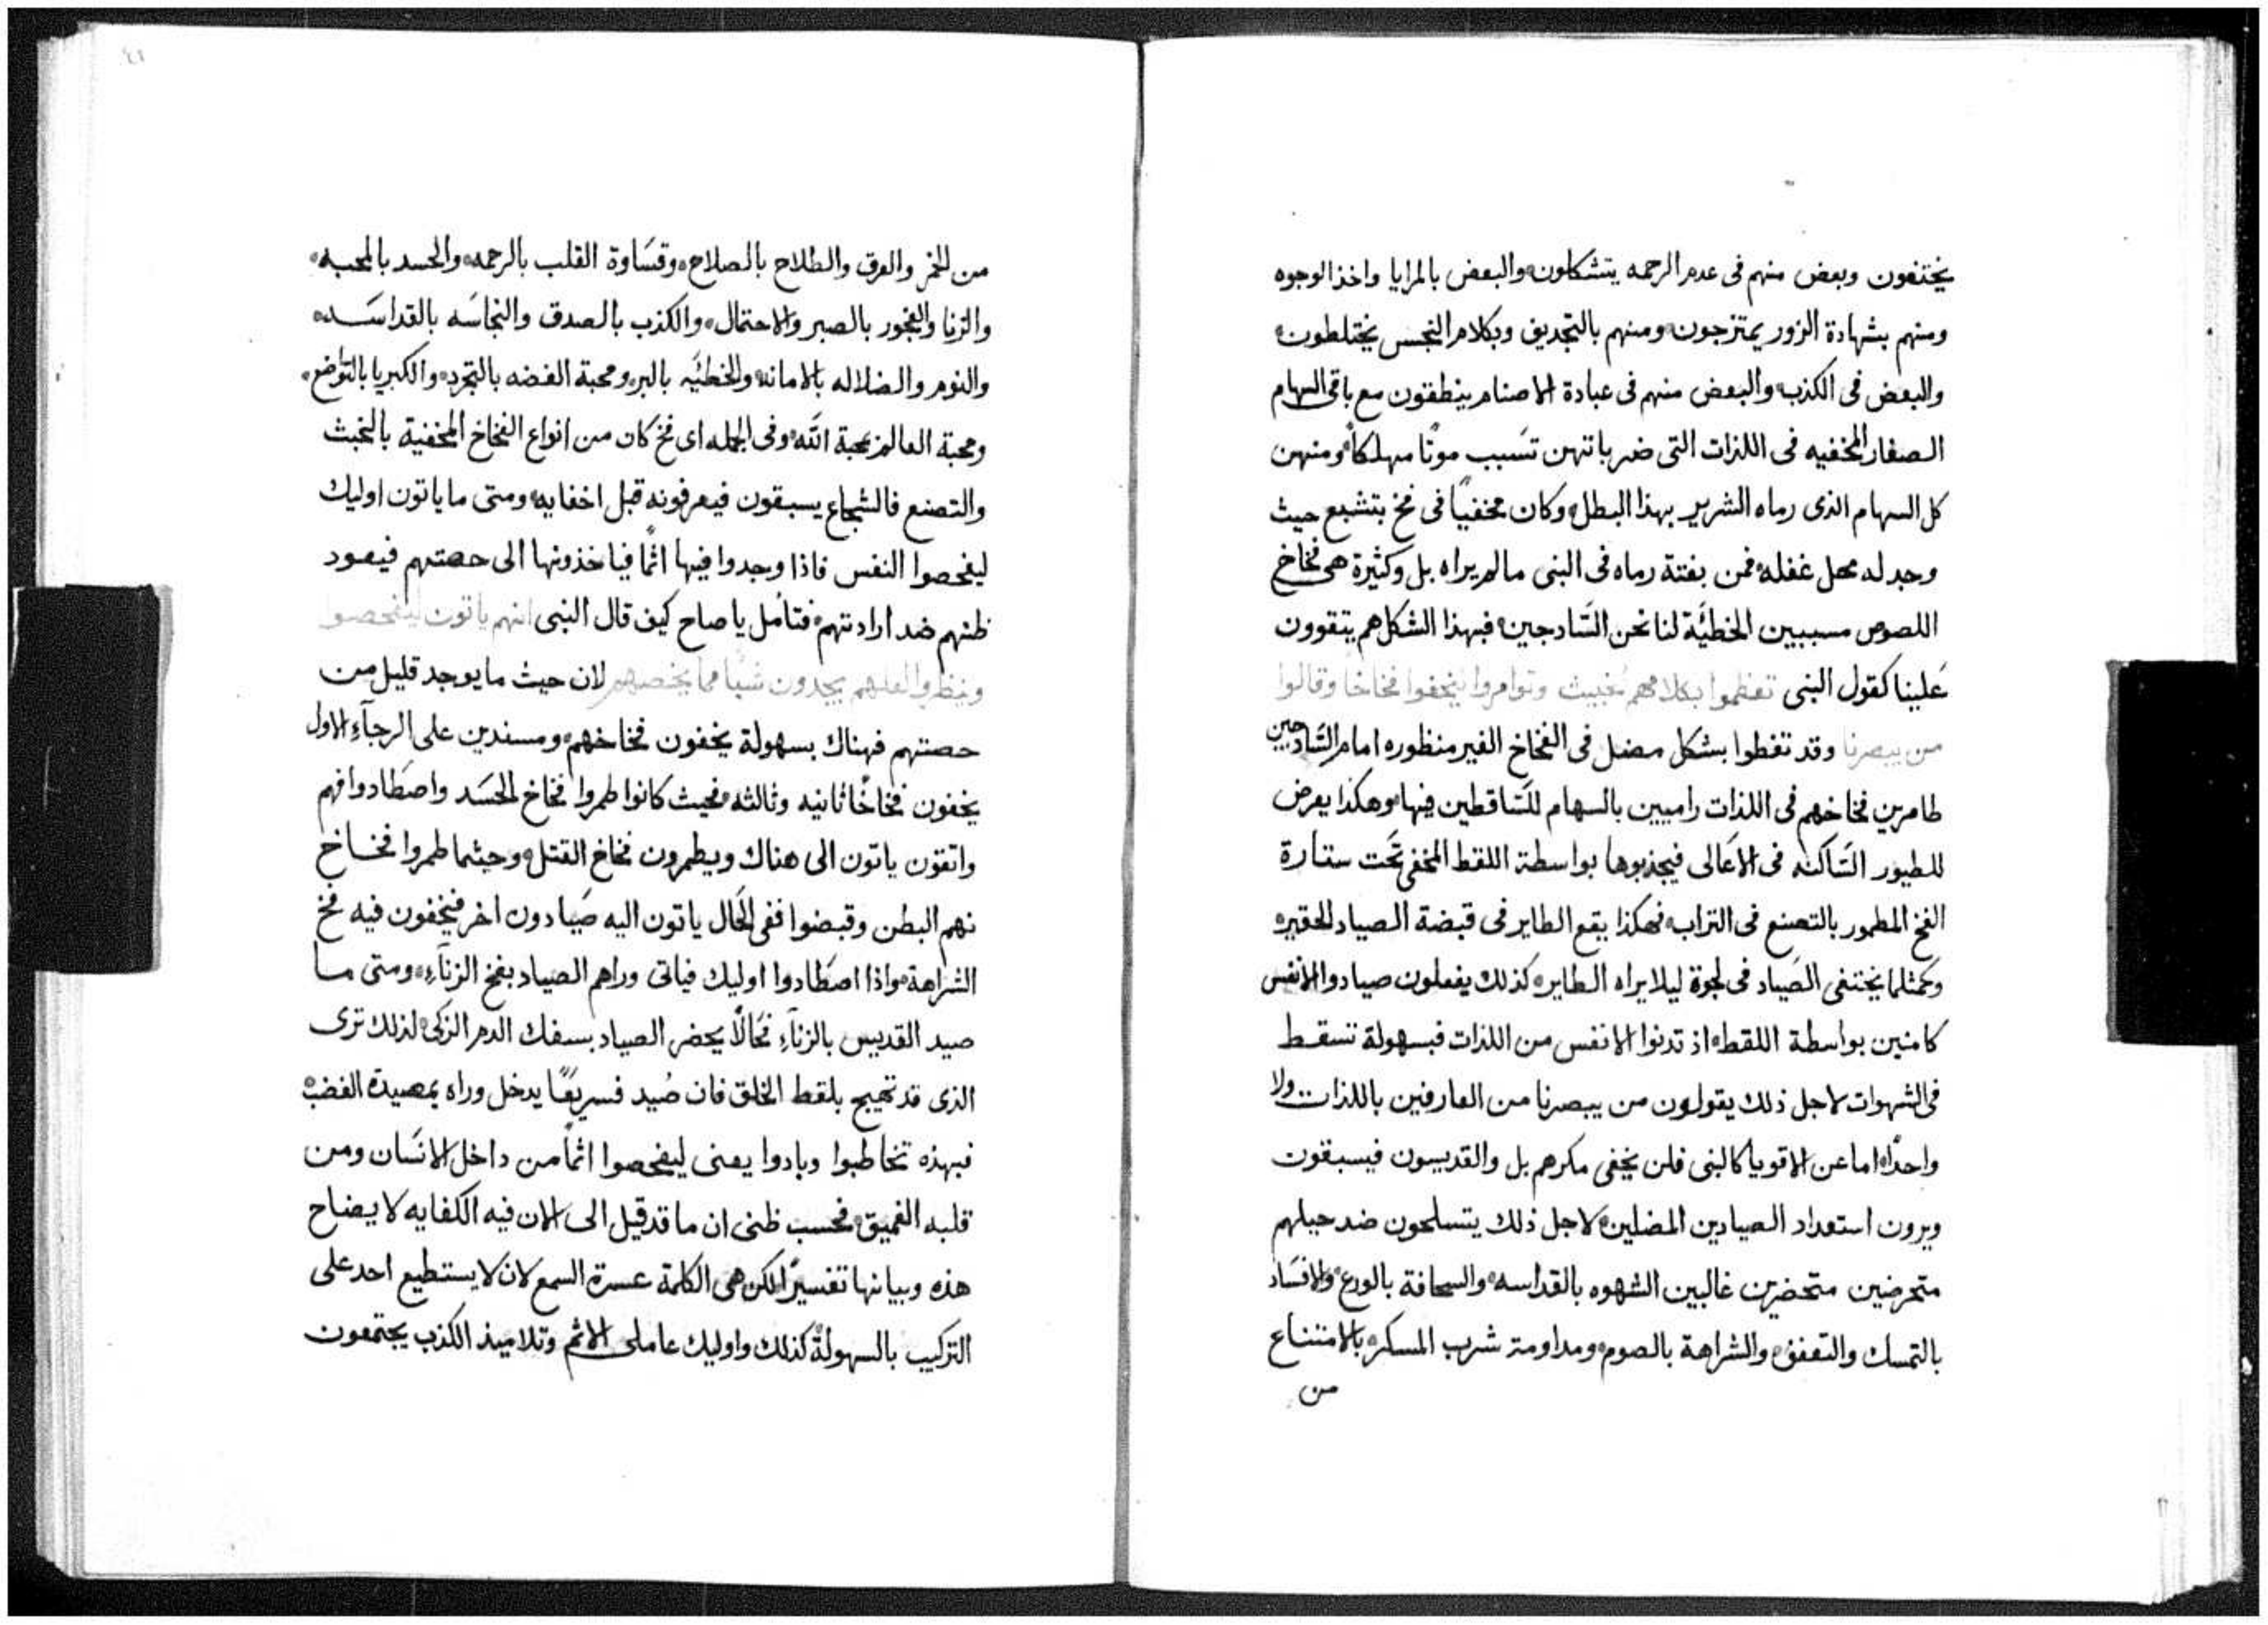 يختفون وبعض منهم فى عدم الرحمه يتشكلون والبعض بالمرايا واخذ الوجوه
ومنهم بشهادة الزور يمتزجون ومنهم بالتجديف وبكلام النجس يختلطون
والبعض فى الكذب والبعض منهم فى عبادة الاصنام ينطفقون مع باقى السهام
الصغار المخفيه فى اللذات التى ضرباتهن تسَبب موتًا مهلكاً ومنهن
كل السهام الذى رماه الشرير بهذا البطل وكان مخفيًا فى فخ بتشبع حيث
وجد له محل غفله فمن بغتة رماه فى النبى ما لم يراه بل وكثيرة هى فخاخ
اللصوص مسببين الخطيَّة لنا نحن السَّادجين فبهذا الشكل هم يتقوون
عَلينا كقول النبى تعظموا بكلامهم خبيث وتوامروا ليخفوا فخاخا وقالوا
من يبصرنا وقد تغطوا بشكل مضل فى الفخاخ الغير منظوره امام السَّادجين
طامرين فخاخهم فى اللذات راميين بالسهام للسَّاقطين فيها وهكذا يعرض
للطيور السَّاكنه فى الاعَالى فيجذبوها بواسطة اللقط المخفى تَحت ستارة
الفخ المطمور بالتصنع فى التراب فهكذا يقع الطاير فى قبضة الصياد الحقيره
وكمثلما يختفى الصَياد فى لجوة ليلا يراه الطاير كذلك يفعلون صيادوا الانفس
كامنين بواسطة اللقط اذ تدنوا الانفس من اللذات فبسهولة تسقط
فى الشهوات لاجل ذلك يقولون من يبصرنا من العارفين باللذات ولا
واحدًا اما عن الاقويا كالنبى فلن يخفى مكرهم بل والقديسون فيسبقون
ويرون استعداد الصيادين المضلين لاجل ذلك يتسلحون ضد حيلهم
متحرضين متحضرين غالبين الشهوه بالقداسه والسحافة بالورع والافسَاد
بالتمسك والتعفف والشراهة بالصوم ومداومة شرب المسكر بالامتناع
من
٤١
من الخمر والعرق والطلاح بالصلاح وقسَاوة القلب بالرحمه والحسد بالمحبه
والزنا والفجور بالصبر والاحتمال والكذب بالصدق والنجاسَه بالقداسَه
والنوم والضلاله بالامانه والخطيَّه بالبر ومحبة الفضه بالتجرد والكبريا بالتواضع
ومحبة العالم بمحبة الله وفى الجمله اى فخ كان من انواع الفخاخ المخفية بالخبث
والتصنع فالشجاع يسبقون فيعرفونه قبل اخفايه ومتى ما ياتون اوليك
ليفحصوا النفس فاذا وجدوا فيها اثمًا فياخذونها الى حصتهم فيعود
ظنهم ضد ارادتهم فتامل يا صاح كيف قال النبى انهم ياتون ليفحصوا
وينظروا لعلهم يجدون شيًا مما يخصهم لان حيث ما يوجد قليل من
حصتهم فهناك بسهولة يخفون فخاخهم ومسندين على الرجآءِ الاول
يخفون فخاخًا ثانيه وثالثه فحيث كانوا طمروا فخاخ الحسَد واصطَادوا فهم
واثقون ياتون الى هناك ويطمرون فخاخ القتل وحيثما طمروا فخاخ
نهم البطن وقبضوا ففى الحَال ياتون اليه صَيادون اخر فيخفون فيه فخ
الشراهة واذا اصطَادوا اوليك فياتى وراهم الصياد بفخ الزنآءِ ومتى ما
صيد القديس بالزنآءِ فحَالًا يحضر الصياد بسفك الدم الزكى لذلك ترى
الذى قد تهيج بلقط الخلق فان صُيد فسريعًا يدخل وراه بمصيدة الغضب
فبهذه تخاطبوا وبادوا يعنى ليفحصوا اثمًا من داخل الانسَان ومن
قلبه الغميق فحسب ظنى ان ما قد قيل الى الان فيه الكفايه لايضاح
هذه وبيانها تفسيرًا لكن هى الكلمة عسرة السمع لان لا يستطيع احد على
التركيب بالسهولة كذلك واوليك عاملى الاثم وتلاميذ الكذب يجتمعون